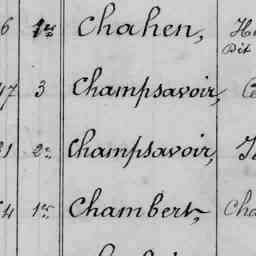 6 1er Chahen,
Dit
47 3 Champsavoir,
21 2e Champsavoir,
4 1er Chambert, Cha